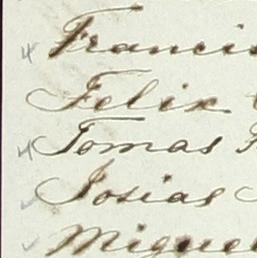 Francis
Felix
Tomas
Josias
Miguel